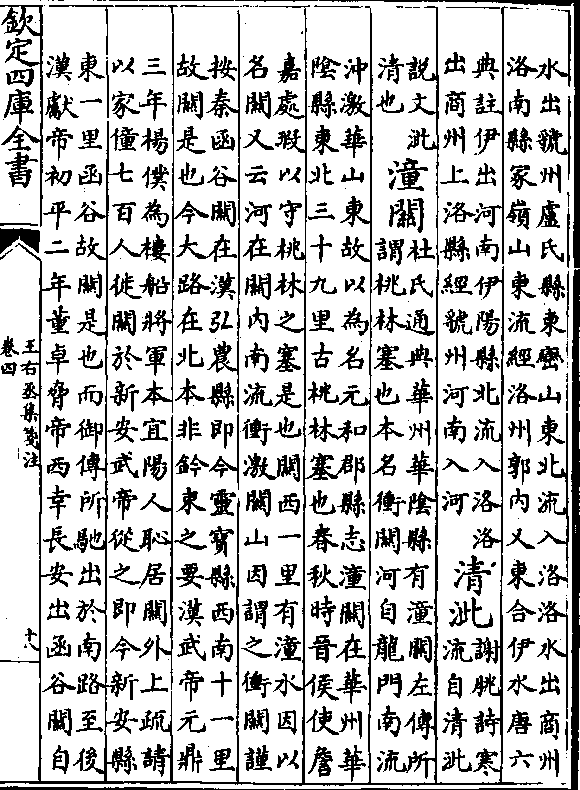 水出虢州盧氏縣東巒山東北流入洛洛水出商州
洛南縣冢嶺山東流經洛州郭内又東合伊水唐六
典註伊出河南伊陽縣北流入洛洛
出商州上洛縣經虢州河南入河
清泚
謝朓詩寒
流自清泚
説文泚
清也
潼關
杜氏通典華州華隂縣有潼關左傳所
謂桃林塞也本名衝關河自龍門南流
沖激華山東故以為名元和郡縣志潼關在華州華
隂縣東北三十九里古桃林塞也春秋時晉侯使詹
嘉處瑕以守桃林之塞是也關西一里有潼水因以
名關又云河在關内南流衝激關山因謂之衝關謹
按秦函谷關在漢弘農縣即今靈寶縣西南十一里
故關是也今大路在北本非鈐束之要漢武帝元鼎
三年楊僕為樓船將軍本宜陽人恥居關外上疏請
以家僮七百人徙關於新安武帝從之即今新安縣
東一里函谷故關是也而御傳所馳出於南路至後
漢獻帝初平二年董卓脅帝西幸長安出函谷關自
欽定四庫全書
王右丞集箋注
卷四
十八